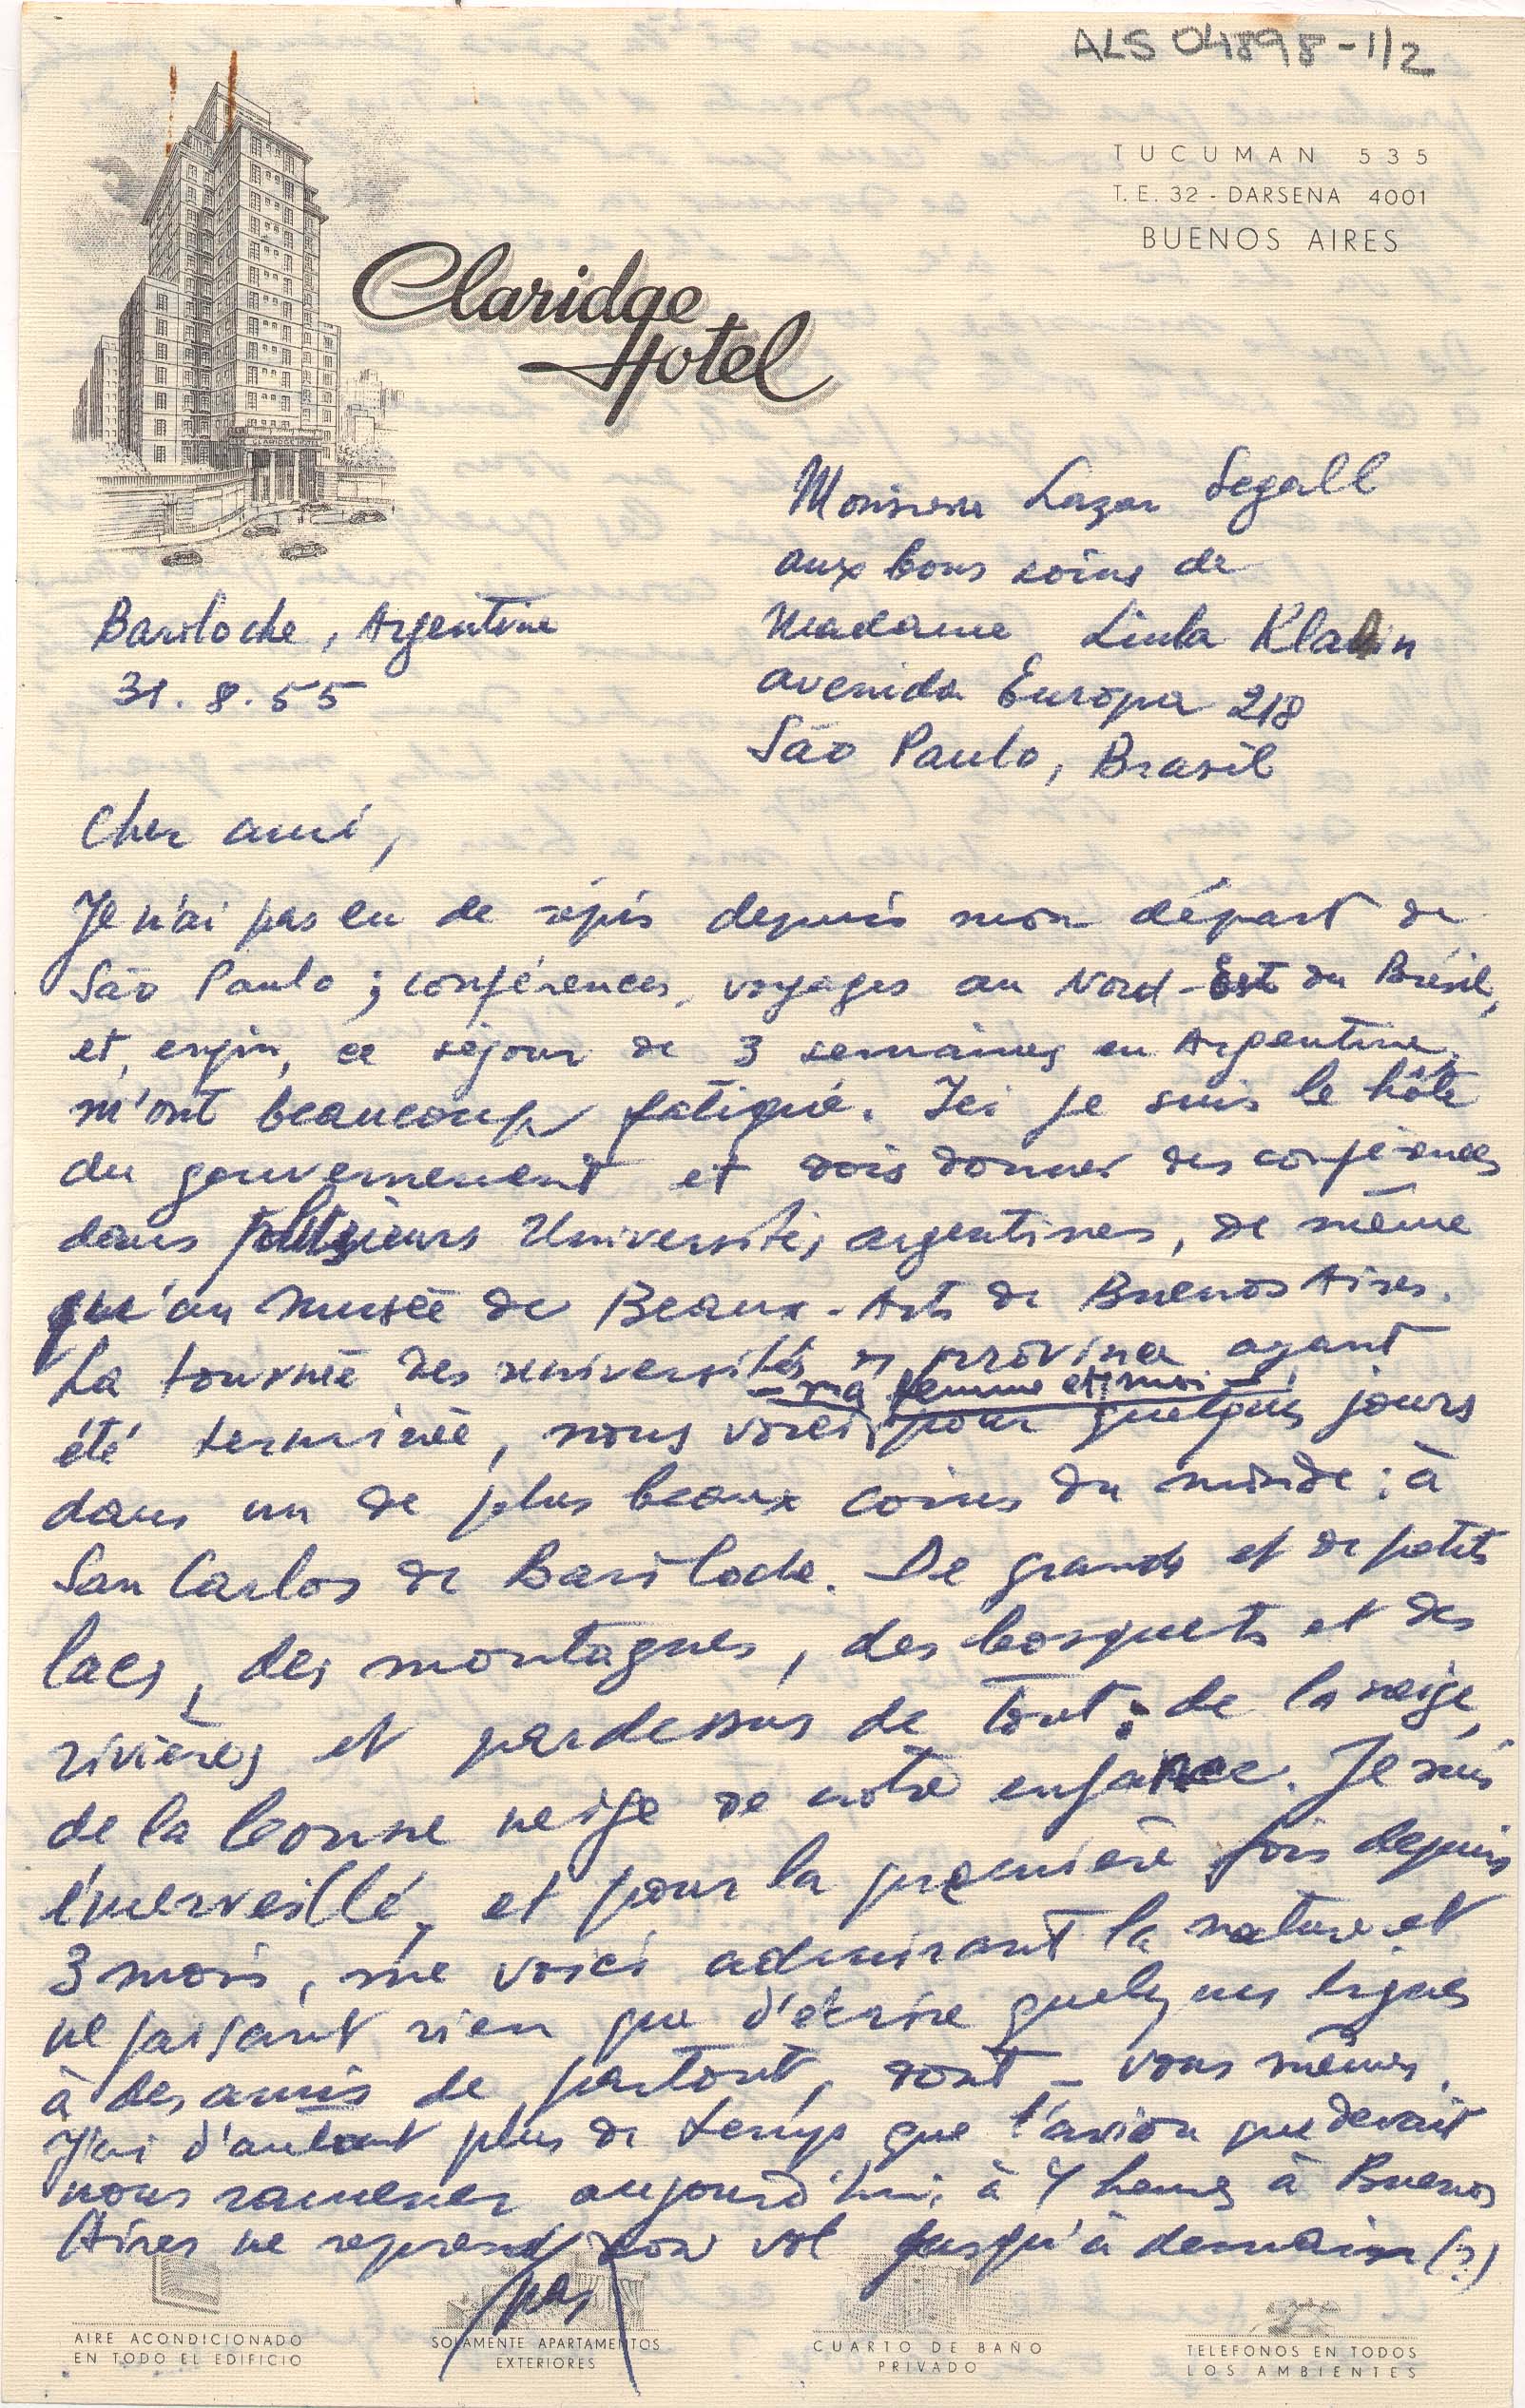 ALS 04898-1/2
TUCUMAN 535
T. E. 32 - DARSENA 4001
BUENOS AIRES
Claridge
Hotel
CLARIDGE HOTEL
Monsieur Lazar Segall
aux bons soins de
Madame Linla Klabin
avenida Europa 218
São Paulo, Brasil
Bariloche, Argentine
31.8.55
Cher ami,
Je n'ai pas eu de répis depuis mon départ de
São Paulo ; conférences, voyages au Nord-Est du Brésil,
et, enfin, ce séjour de 3 semaines en Argentine,
m'ont beaucoup fatigué. Ici je suis le hôte
du gouvernement et dois donner des conférences
dans plusieurs Universités argentines, de même
qu'au Musée de Beaux-Arts de Buenos Aires.
La tournée des universités de province ayant
- ma femme et moi -
été terminée, nous voici pour quelques jours
dans un de plus beaux coins du monde : à
San Carlos de Bariloche. De grands et de petits
lacs, des montagnes, des bosquets et des
rivières et pardessus de tout : de la neige,
de la bonne neige de notre enfance. Je suis
émerveillé, et pour la première fois depuis
3 mois, me voici admirant la nature et
ne faisant rien que d'écrire quelques lignes
à des amis de partout, dont - vous mêmes.
J'ai d'autant plus de temps que l'avion que devait
nous ramener aujourd'hui, à 4 heures à Buenos
Aires ne reprend son vol jusqu'à demain (?)
pas
AIRE ACONDICIONADO
EN TODO EL EDIFICIO
SOLAMENTE APARTAMENTOS
EXTERIORES
CUARTO DE BAÑO
PRIVADO
TELEFONOS EN TODOS
LOS AMBIENTES